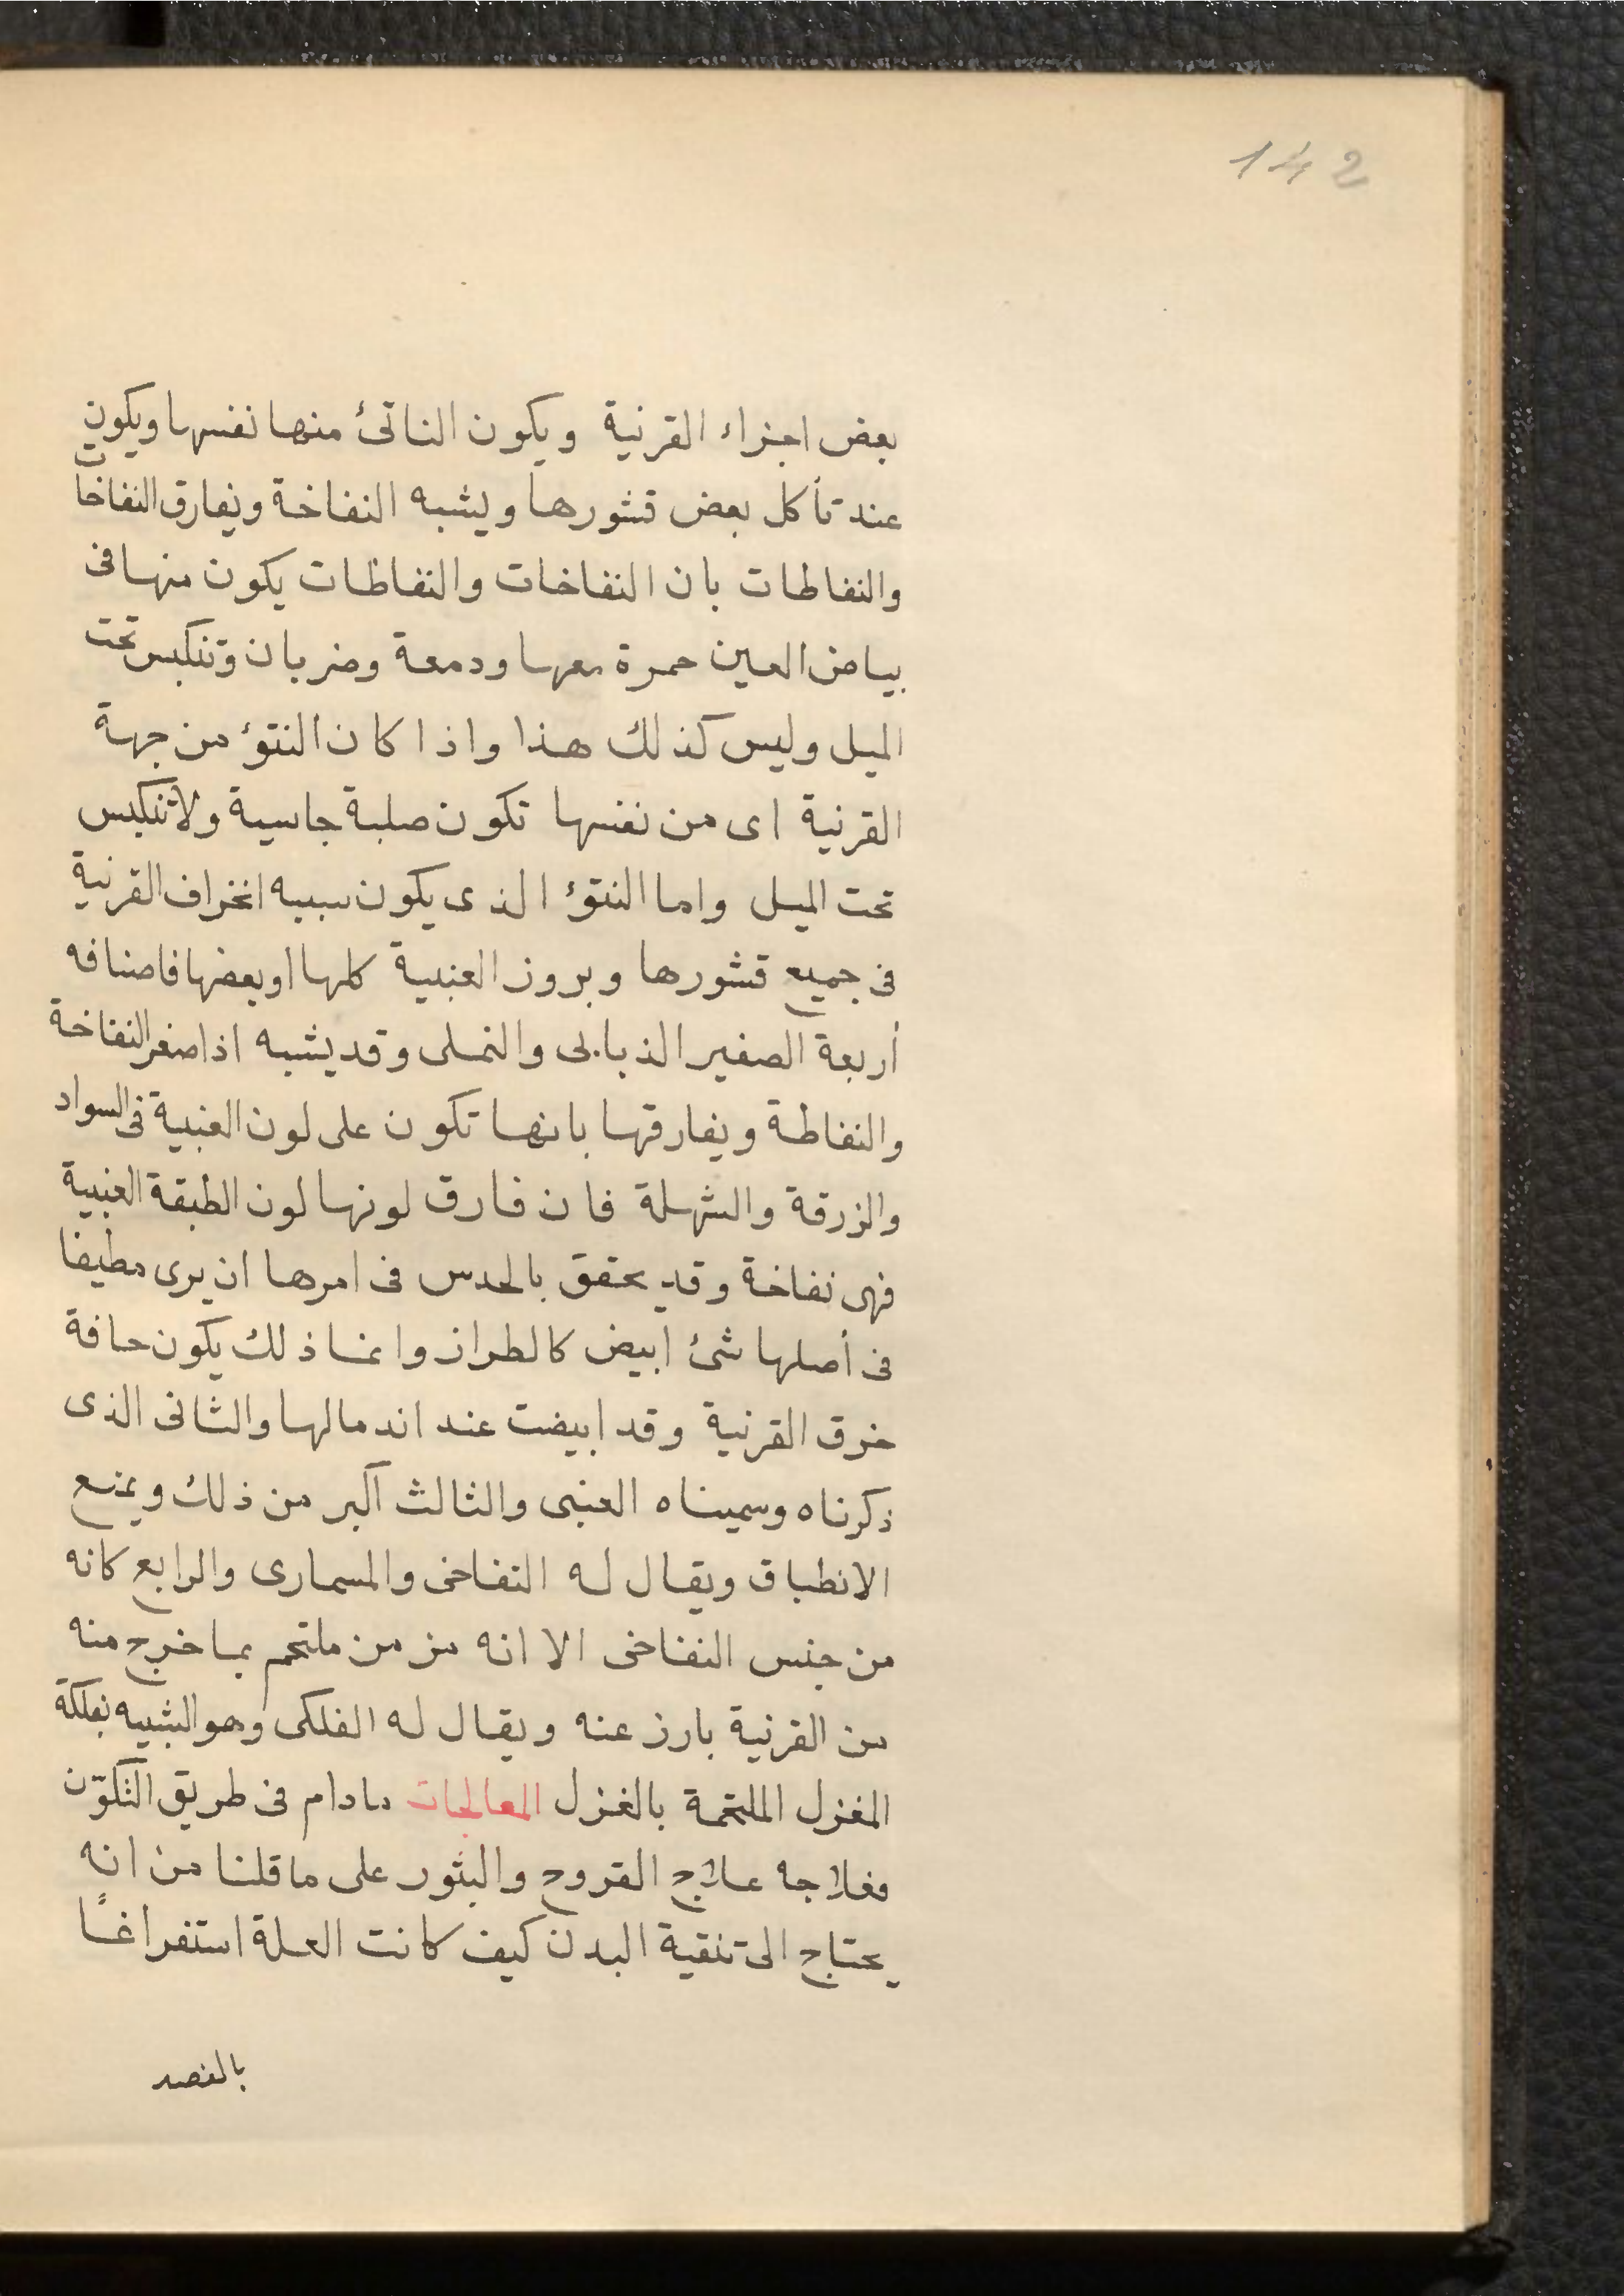 142
بعض اجزاء القرنية ويكون الناتئ منها نفسها ويكون
عند تأكل بعض قشورها ويشبه النفاخة ويفارق النفاخات
والنفاطات بان النفاخات والنفاطات يكون منها فى
بياض العين حمرة معها ودمعة وضربان وتنكبس تحت
الميل وليس كذلك هذا واذا كان النتوٴ من جهة
القرنية اى من نفسها تكون صلبة جاسية ولا تنكبس
تحت الميل واما النتوٴ الذى يكون سببه انخراف القرنية
فى جميع قشورها وبروز العنبية كلها او بعضها فاصنافه
أربعة الصغير الذبابى والنملى وقد يشبه اذا صغر النفاخة
والنفاطة ويفارقها بانها تكون على لون العنبية فى السواد
والزرقة والشهلة فان فارق لونها لون الطبقة العنبية
فهى نفاخة وقد يحقق بالحدس فى امرها ان يرى مطيفا
فى أصلها شئ ابيض كالطراز وانما ذلك يكون حافة
خرق القرنية وقد ابيضت عند اندمالها والثانى الذى
ذكرناه وسميناه العنبى والثالث اكبر من ذلك ويمنع
الانطباق ويقال له التفاحى والمسمارى والرابع كانه
من جنس النفاخى الا انه مزمن ملتحم بما خرج منه
من القرنية بارز عنه ويقال له الفلكى وهو الشبيه بفلكة
المغزل الملتحمة بالغزل المعالجات مادام فى طريق التكوّن
فعلاجه علاج القروح والبثور على ما قلنا من انه
يحتاج الى تنقية البدن كيف كانت العلة استفراغًا
بالفصد